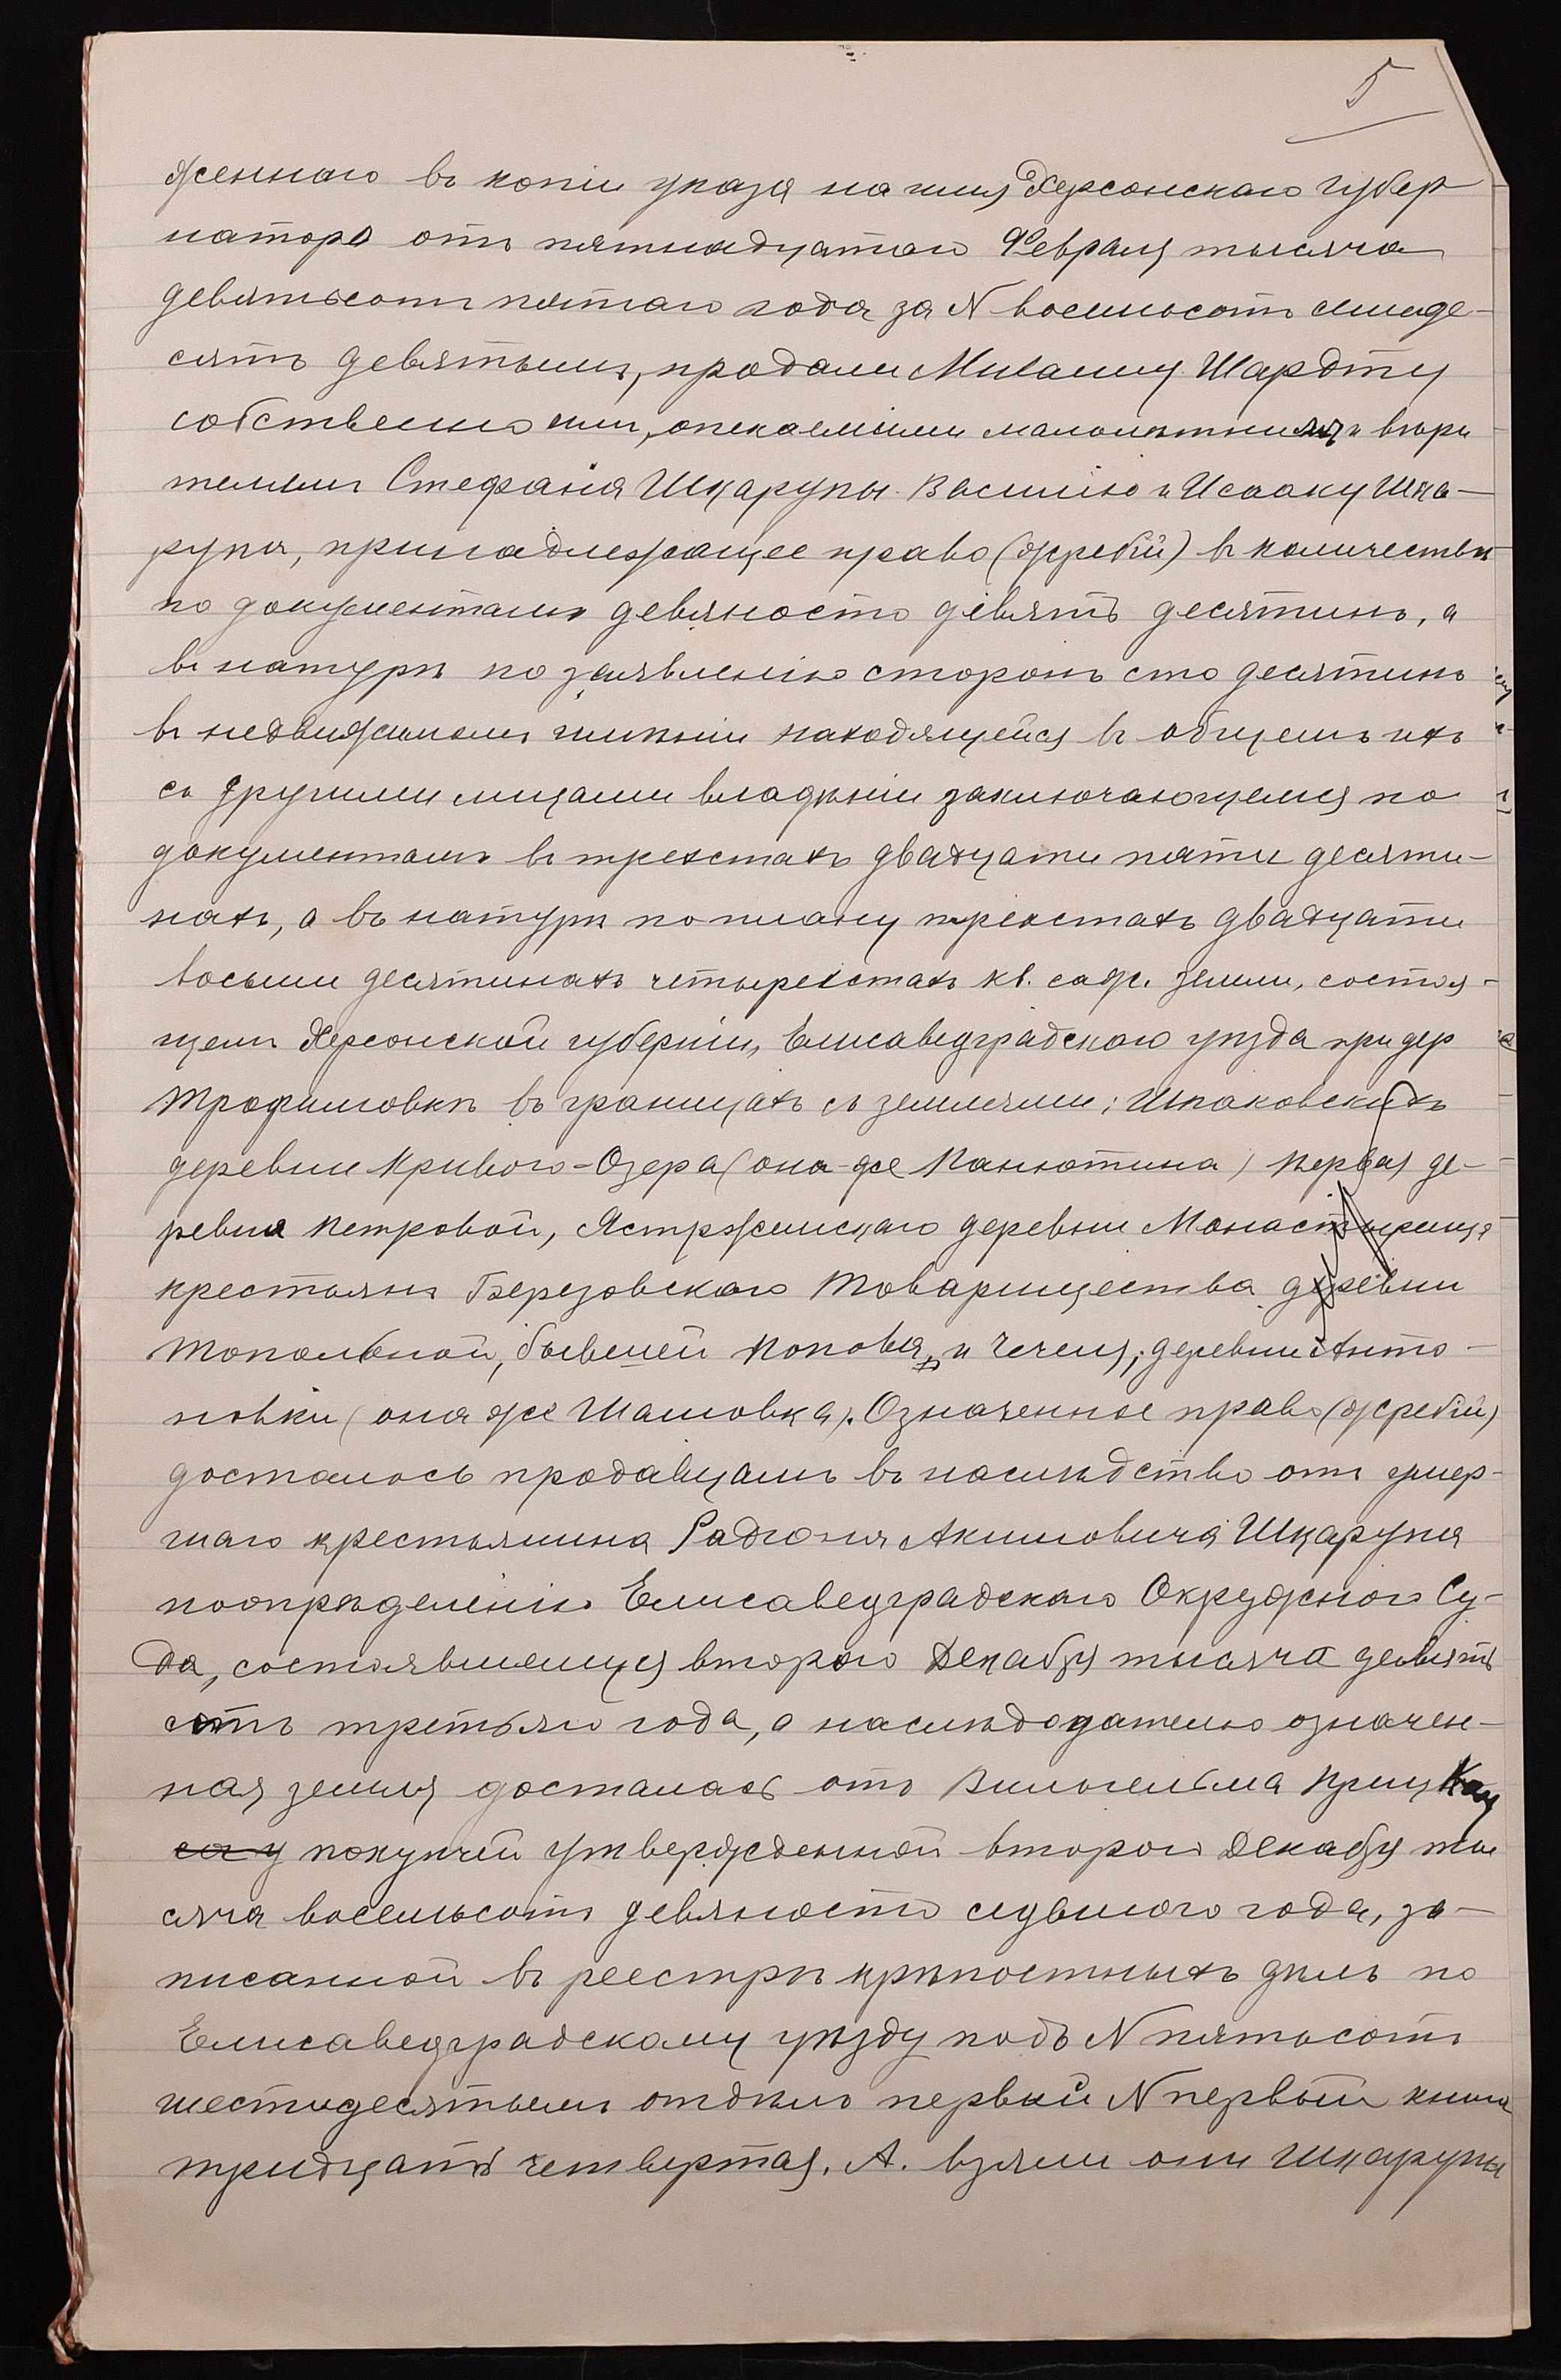 5
женнаго въ копіи указа на имя Херсонскаго губер
натора отъ пятнадцатаго Февраля тысяча
девятьсотъ пятаго года за N восемьсотъ семьде-
сятъ девятымъ, продали Михаилу Шардту
собственно имъ, опекаемымъ малолѣтнимъ и вѣри
телямъ Стефана Шкарупы Василію и Исааку Шка-
рупа, принадлежащее право (жребій) въ количествѣ
по документамъ девяносто девять десятинъ, а
въ натурѣ по заявленію сторонъ сто десятинъ
въ недвижимомъ имѣніи находящейся въ общемъ ихъ
съ другими лицами владѣніи заключающемся по
документамъ въ трехстахъ двадцати пяти десяти-
нахъ, а въ натурѣ по плану трехстахъ двадцати
восьми десятинахъ четырехстахъ кв. саж. земли, состоя-
щемъ Херсонской губерніи, Елисаведградскаго уѣзда при дер
Трофимовкѣ въ границахъ съ землями: Шпаковскихъ
деревни Криваго-Озера (она-же Канютина) первая де-
ревня Петровой, Ястржимскаго деревни Монастырища
крестьянъ Березовскаго Товарищества деревни
Топольной, бывшей Попова, и Чечеля; деревни Анто-
новки (она же Шамовка). Означенное право (жребій)
досталось продавцамъ въ наслѣдство отъ умер-
шаго крестьянина Радіона Акимовича Шкарупа
поопрѣделенію Елисаведградскаго Окружного Су-
да, состоявшемуся второго Декабря тысяча девять
сотъ третьяго года, а наслѣдодателю означен-
ная земля досталась отъ Вильгельма Крицкау
са у покупчей утвержденной второго Декабря ты
сяча восемьсотъ девяносто седьмого года, за-
писанной въ реестрѣ крѣпостныхъ дѣлъ по
Елисаведградскому уѣзду подъ N пятьсотъ
шестидесятымъ отдѣлъ первый N первый книга
тридцать четвертая. А. взяли они Шкарупы